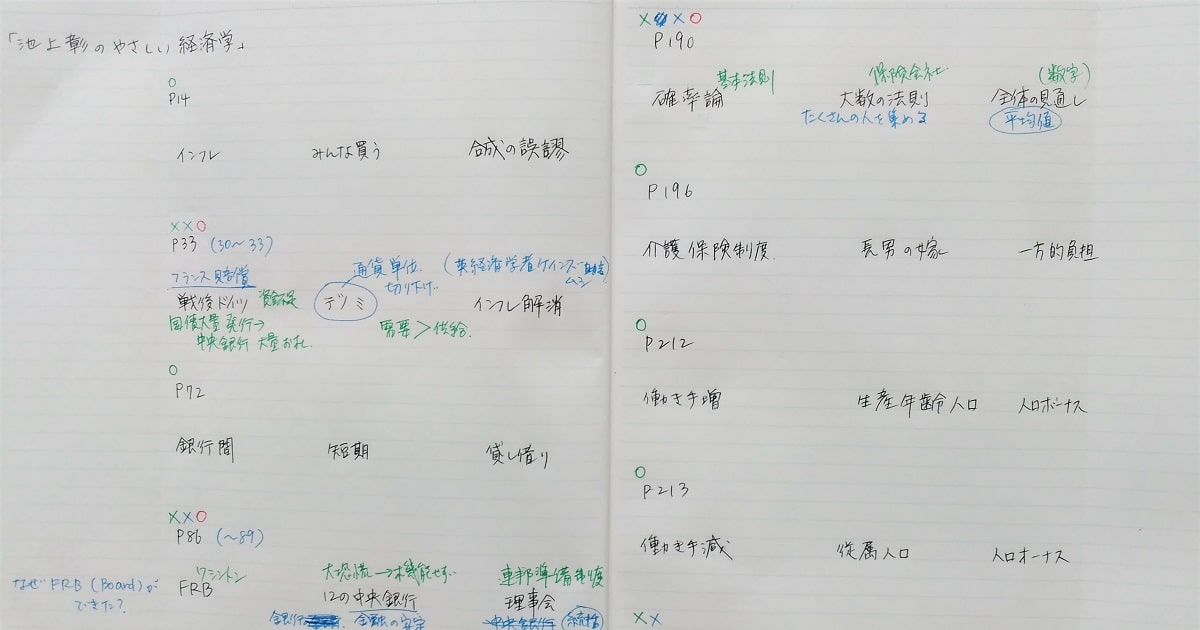 「池上彰のやさしい経済学」
○
P14
インフレ みんな買う 合成の誤謬
××○
P33 (30〜33)
フランス賠償 通貨単位 (英経済学者ケインズ
切り下げ
戦後ドイツ 資金不足 デノミ インフレ解消
国債大量発行→ 需要>供給
中央銀行 大量お札
○
P72
銀行間 短期 貸し借り
××○
P86 (〜89)
ワシントン 大恐慌→ 機能せず 連邦準備制度
なぜFRB(Board)が FRB 12の中央銀行 理事会
できた? 銀行 金融の安定 中央銀行 統括
×××○
P190
基本法則 保険会社 (数字)
確率論 大数の法則 全体の見通し
たくさんの人を集める 平均値
○
P196
介護保険制度 長男の嫁 一方的負担
○
P212
働き手増 生産年齢人口 人口ボーナス
○
P213
働き手減 従属人口 人口オーナス
××